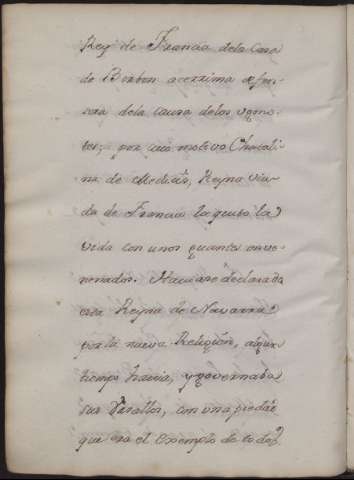 Rey de Francia dela Casa
de Borbon acerrima defen-
sora dela causa delos vgono-
tes; por cuio motivo Chatali-
na de Medicis, Reyna viu-
da de Francia la quitò la
vida con unos guantes enve-
nenados. Haviase declarada
esta Reyna de Navarra
por la nueva Religion, algun
tiempo havia, y governaba
sus Vasallos, con una piedad
que era el exemplo de todos